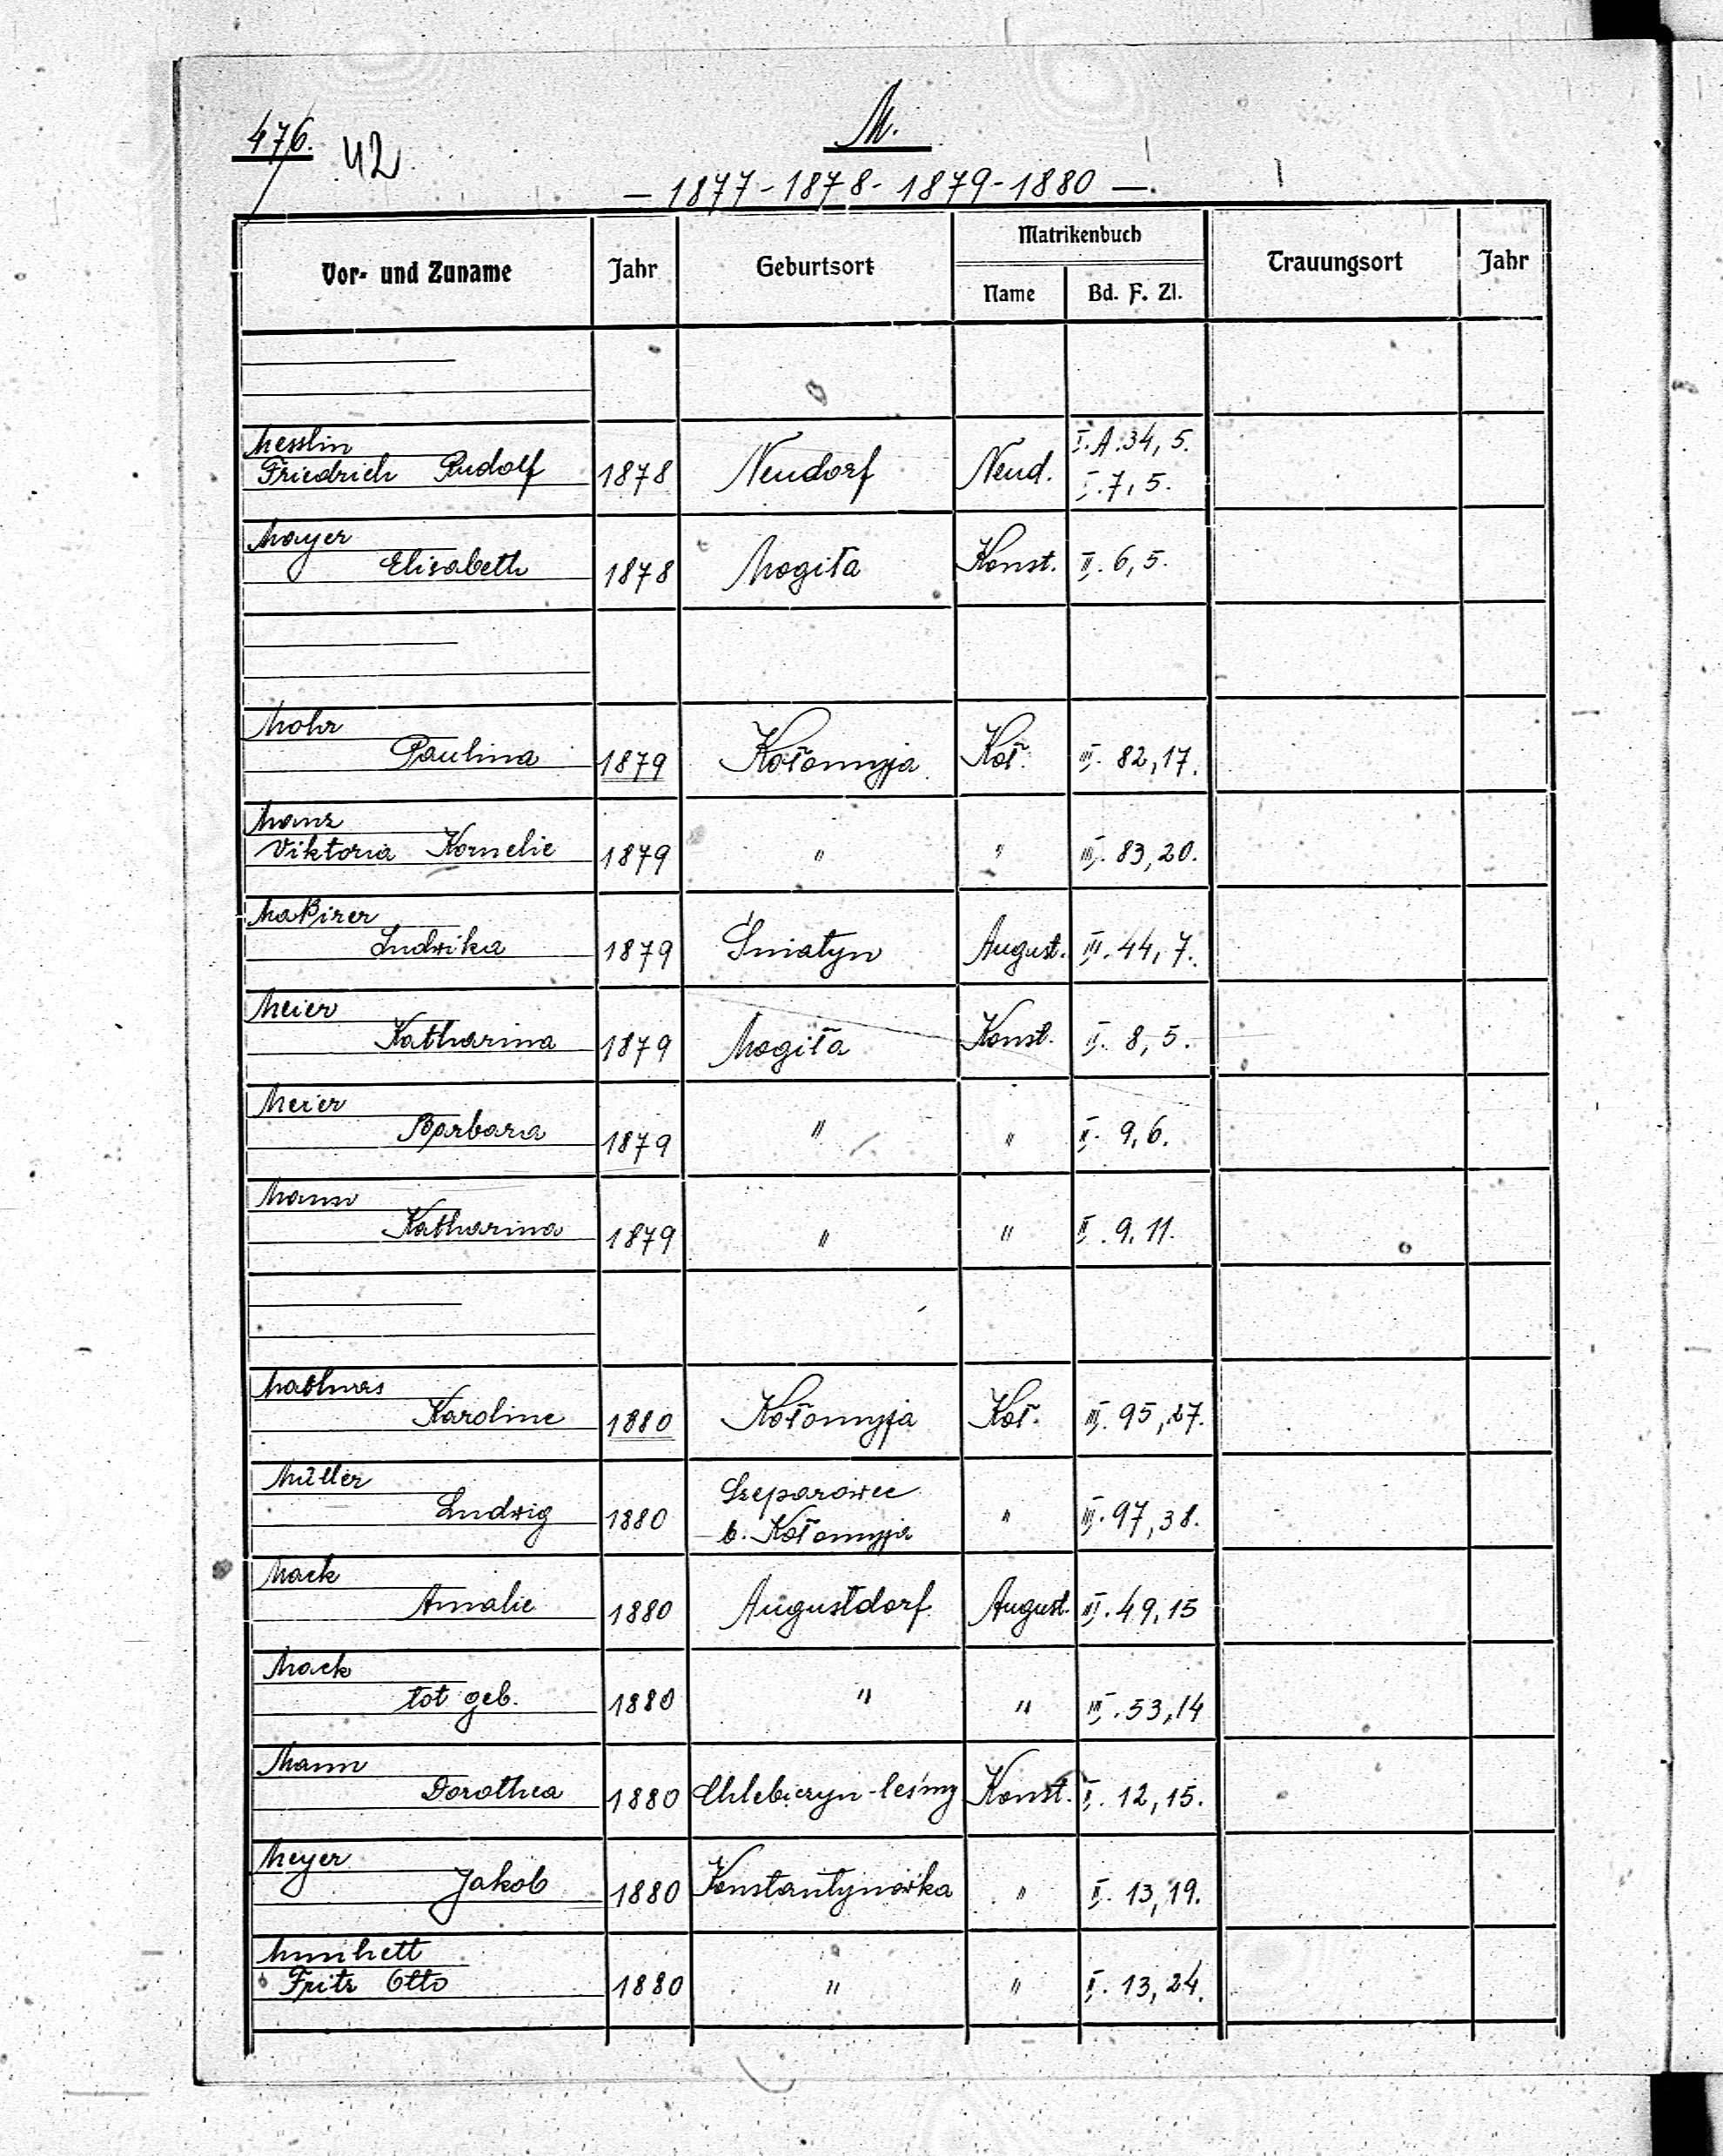 476.
42
M.
— 1877 - 1878 - 1879 - 1880 —
Vor- und Zuname Jahr Geburtsort Matrikenbuch Trauungsort Jahr
Name Bd. F. Zl.
Messlin
Friedrich Rudolf 1878 Neudorf Neud. I. A. 34, 5.
I. 7, 5.
Mayer
Elisabeth 1878 Mogiła Konst. II. 6, 5.
Mohr
Paulina 1879 Kołomyja Koł. III. 82, 17.
Manz
Viktoria Kornelie 1879 " " III. 83, 20.
Ludwika 1879 Śniatyn August. III. 44, 7.
Meier
Katharina 1879 Mogiła Konst. II. 8, 5.
Meier
Barbara 1879 " " II. 9, 6.
Mann
Katharina 1879 " " II. 9, 11.
Karoline 1880 Kołomyja Koł. III. 95, 27.
Müller
Ludwig 1880 Szeparowce " III. 97, 38.
b. Kołomyja
Mack
Amalie 1880 Augustdorf August. III. 49, 15
Mack
tot geb. 1880 " " III. 53, 14
Mann
Dorothea 1880 Chlebiczyn-leśny Konst. II. 12, 15.
Meyer
Jakob 1880 Konstantynówka " II. 13, 19.
Fritz Otto 1880 " " II. 13, 24.